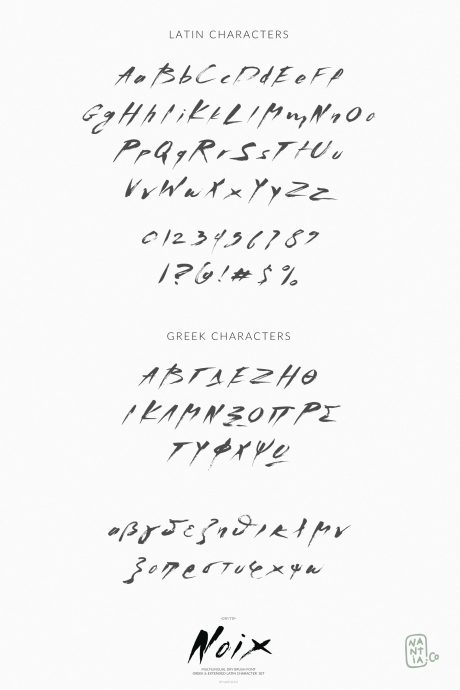 LATIN CHARACTERS
AaBbCcDdEeFf
GgHhIiKkLlMmNnOo
PpQqRrSsTtUu
VvWwXxYyZz
0123456789
!?@!#$%
GREEK CHARACTERS
ΑΒΓΔΕΖΗΘ
ΙΚΛΜΝΞΟΠΡΣ
ΤΥΦΧΨΩ
αβγδεζηθικλμν
ξοπρστυφχψω
Noix
MULTILINGUAL DRY BRUSH FONT
GREEK & EXTENDED LATIN CHARACTER SET
NANTIA.CO